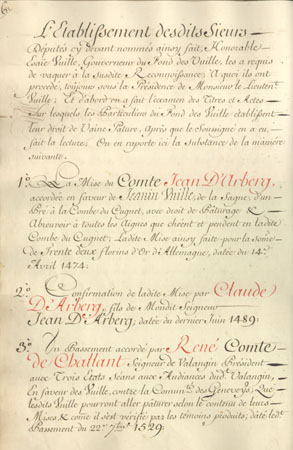 6.
L'Etablissement desdits Sieurs
Députés cy devant nommés ainsy fait, Honorable
Esaïe Vuille, Gouverneur du Fond des Vuille, les a requis
de vaquer à la Susdite Reconnoissance; A quoi ils ont
procedé, toûjours sous la Présidence de Monsieur le Lieuten.t
Vuille; Et d'abord on a fait l'examen des Titres et Actes
Sur lesquels les Particuliers du Fond des Vuille établissent
leur droit de Vaine Pâture, Après que le Soussigné en a eu
fait la lecture; On en raporte ici la Substance de la maniere
suivante.
1.º La Mise du Comte Jean D'Arberg,
accordée en faveur de Jeanin Vuille, de la Sagne, d'un
Pré à la Combe du Cugnet, avec droit de Pâturage &
Abreuvoir à toutes les Aigues que chéent et pendent en la dite
Combe du Cugnet; Ladite Mise ainsy faite pour la Some
de Trente deux florins d'Or d'Allemagne, datée du 14.e
Avril 1474.
2.º Confirmation de ladite Mise par Claude
D'Arberg, fils de Mondit Seigneur
Jean D'Arberg, datée du dernier Juin 1489.
3.º Un Passement accordé par René Comte
de Challant Seigneur de Valangin Président
aux Trois Etats Séans aux Audiances dud. Valangin,
En faveur des Vuille, contre la Commun.té des Geneveys; Que
lesdits Vuille pourront aller pâturer selon le contenu de leurs
Mises & come il s'est vérifié par les témoins produits; daté led.t
Passement du 22.e 7.bre 1529.